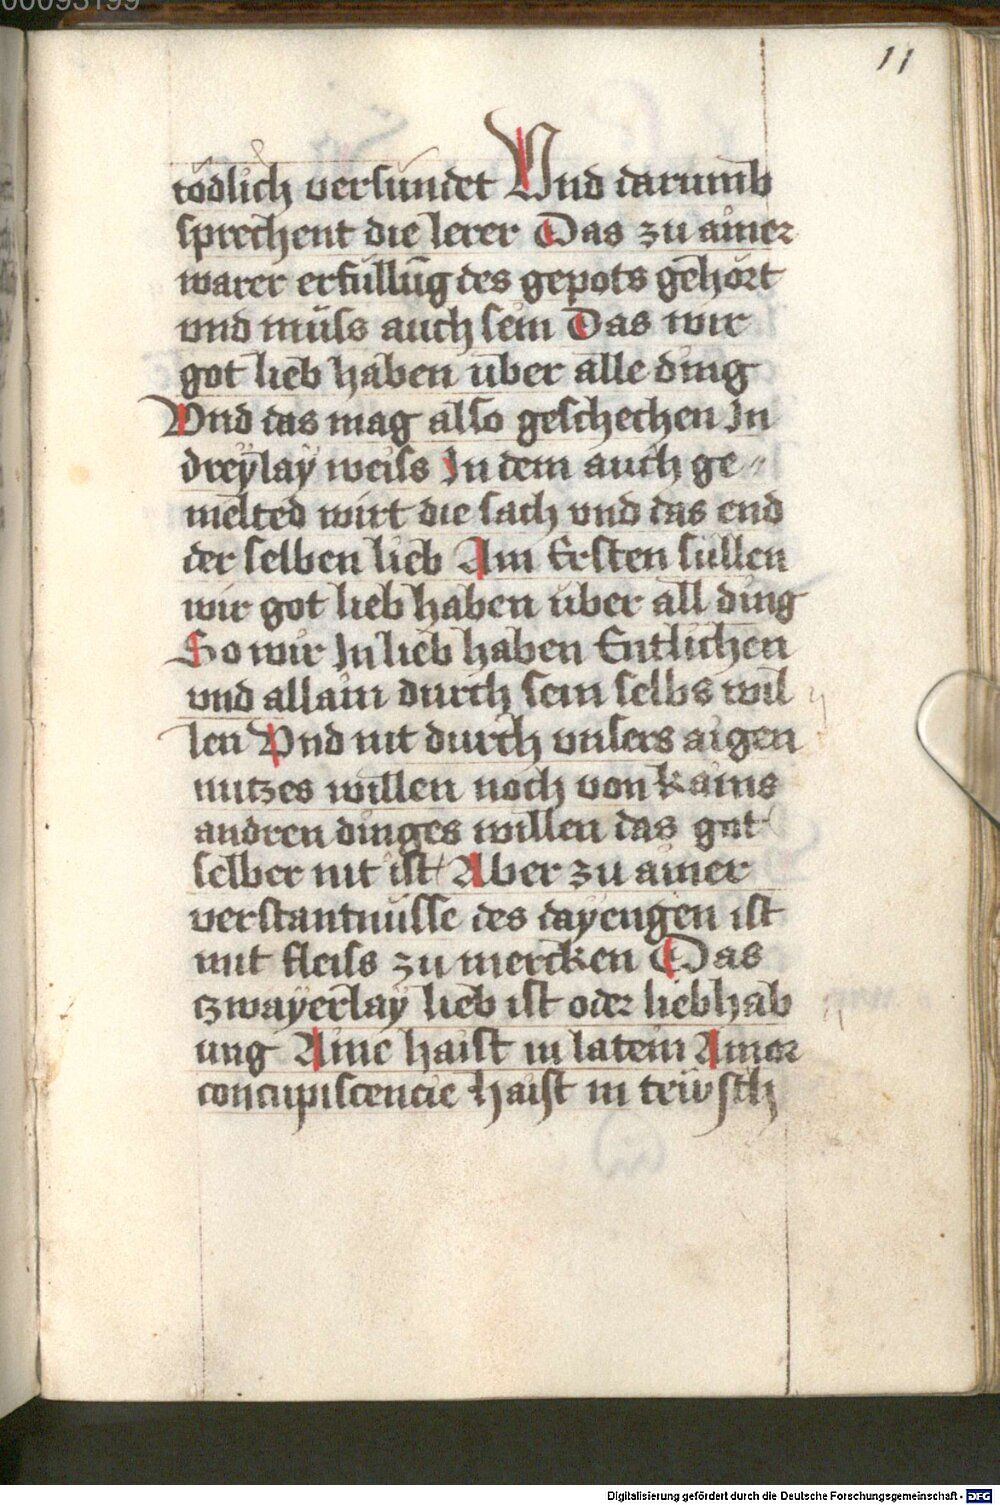 00093199
11
tödlich versündet Vnd darumb
sprechent die lerer Das zu ainer
warer erfüllūg des gepots gehört
vnd müss auch sein Das wir
got lieb haben über alle ding
Vnd das mag also geschechen In
dreÿlaÿ weiss In dem auch ge„
melted wirt die sach vnd das end
der selben lieb Am Ersten süllen
wir got lieb haben über all ding
So wir In lieb haben Entlichen
vnd allain durch sein selbs wil
len Vnd nit durch vnsers aigen
nutzes willen noch von kains
andren dinges willen das got
selber nit ist Aber zu ainer
verstantnüsse des dayengen ist
mit fleiss zu mercken Das
czwayerlaÿ lieb ist oder liebhab
ung Aine haist in latein Amor
concupiscencie haist in teüsch
Digitalisierung gefördert durch die Deutsche Forschungsgemeinschaft - DFG